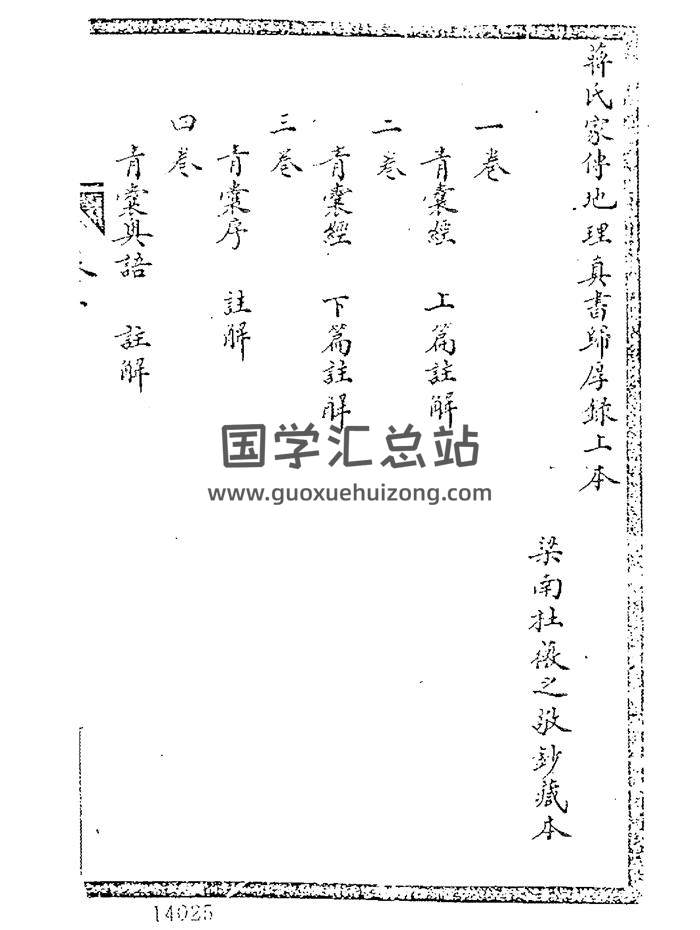 蔣氏家傳地理真書歸厚錄上本
梁南杜薇之敬鈔藏本
一卷
青囊經 上篇註解
二卷
青囊經 下篇註解
三卷
青囊序 註解
四卷
青囊奥語 註解
国学汇总站
www.guoxuehuizong.com
14025